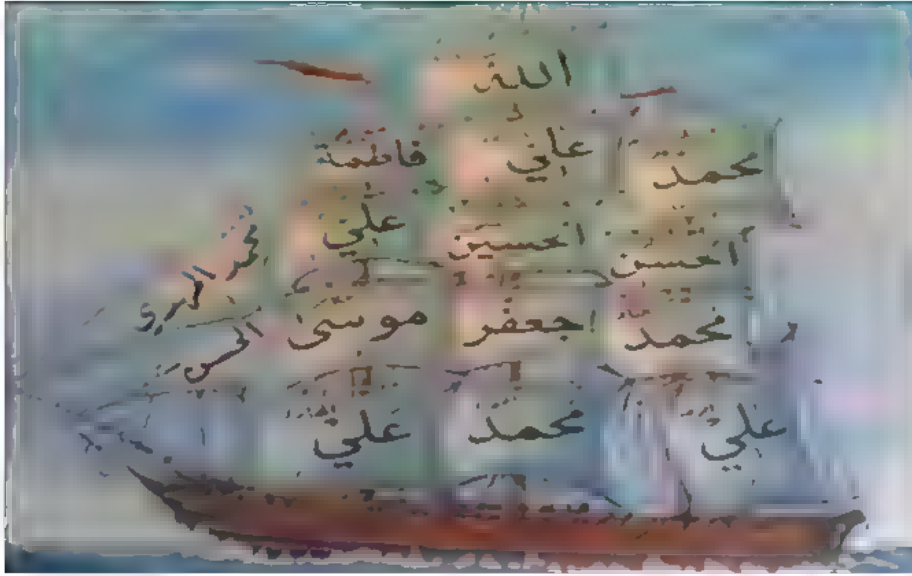 الله
محمد علي فاطمة
الحسن الحسين علي
محمد جعفر موسى
علي محمد علي
الحسن
محمد المهدي